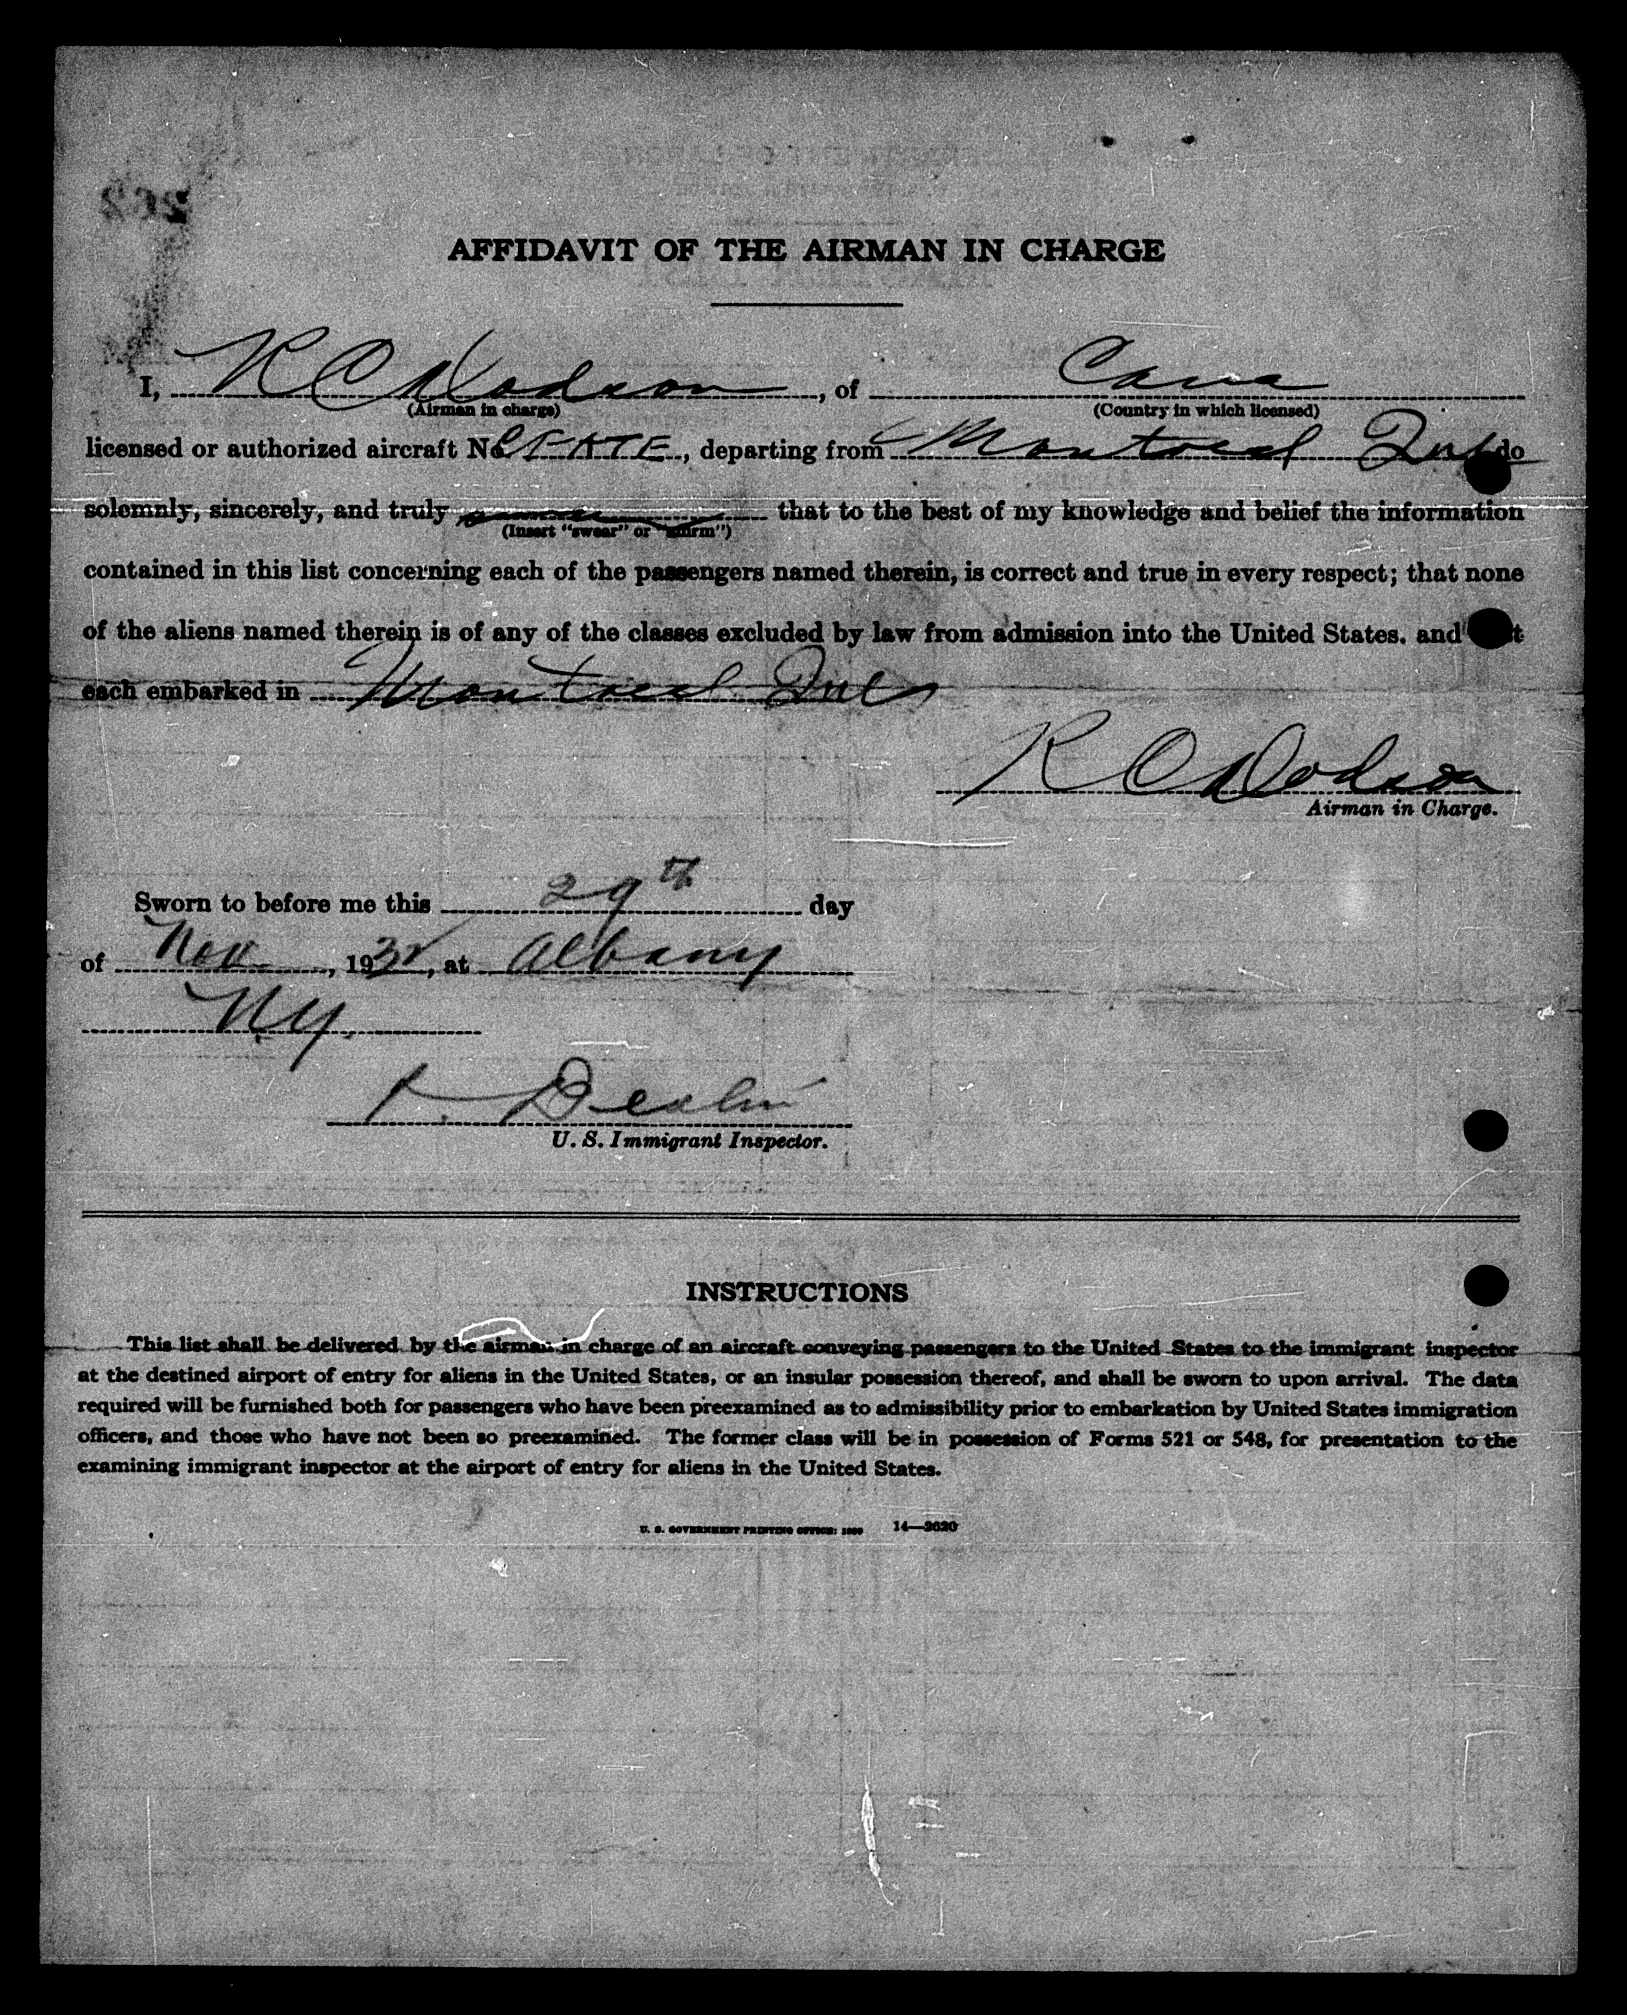 AFFIDAVIT OF THE AIRMAN IN CHARGE
I, R C Dodson, of Cana
(Airman in charge) (Country in which licensed)
licensed or authorized aircraft No. CFATE, departing from Montreal Que do
solemnly, sincerely, and truly that to the best of my knowledge and belief the information
(Insert "swear" or "affirm")
contained in this list concerning each of the passengers named therein, is correct and true in every respect; that none
of the aliens named therein is of any of the classes excluded by law from admission into the United States, and that
each embarked in Montreal Que
R C Dodson
Airman in Charge.
Sworn to before me this 29th day
of Nov., 1932, at Albany
N.Y.
U. S. Immigrant Inspector.
INSTRUCTIONS
This list shall be delivered by the airman in charge of an aircraft conveying passengers to the United States to the immigrant inspector
at the destined airport of entry for aliens in the United States, or an insular possession thereof, and shall be sworn to upon arrival. The data
required will be furnished both for passengers who have been preexamined as to admissibility prior to embarkation by United States immigration
officers, and those who have not been so preexamined. The former class will be in possession of Forms 521 or 548, for presentation to the
examining immigrant inspector at the airport of entry for aliens in the United States.
U. S. GOVERNMENT PRINTING OFFICE: 14—3620